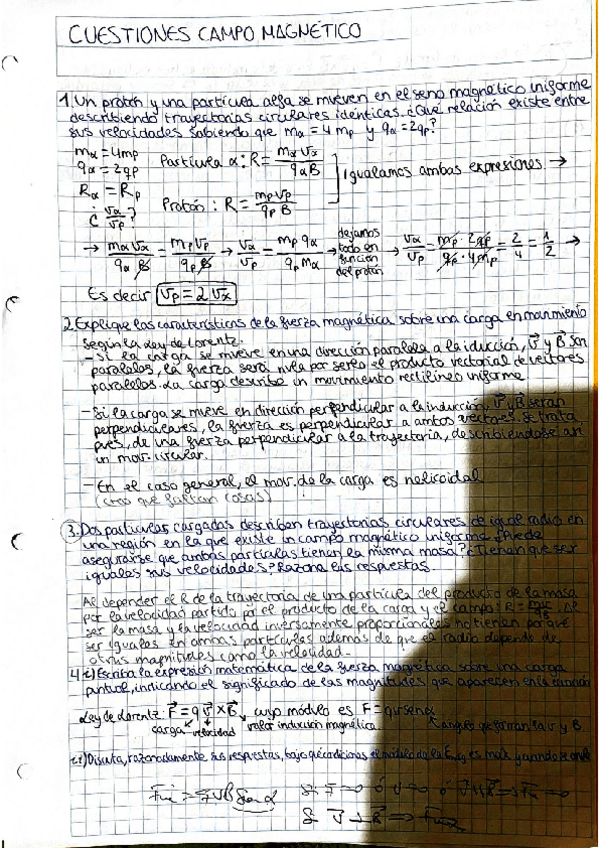 CUESTIONES CAMPO MAGNÉTICO
1. Un protón y una partícula alfa se mueven en el seno magnético uniforme
describiendo trayectorias circulares idénticas. ¿Qué relación existe entre
sus velocidades sabiendo que mα = 4 mp y qα = 2qp?
mα = 4mp
qα = 2qp
Partícula α: R = mα vα / qα B
Igualamos ambas expresiones →
Rα = Rp
¿ vα / vp ?
Protón: R = mp vp / qp B
→ mα vα / qα B = mp vp / qp B → vα / vp = mp qα / qp mα → dejamos todo en función del protón → vα / vp = mp · 2qp / qp · 4mp = 2/4 = 1/2 →
Es decir vp = 2 vα
2. Explique las características de la fuerza magnética sobre una carga en movimiento
según la Ley de Lorentz.
- Si la carga se mueve en una dirección paralela a la inducción, v y B son
paralelos, la fuerza será nula por serlo el producto vectorial de vectores
paralelos. La carga describe un movimiento rectilíneo uniforme
- Si la carga se mueve en dirección perpendicular a la inducción, v y B serán
perpendiculares, la fuerza es perpendicular a ambos vectores. Se trata
pues, de una fuerza perpendicular a la trayectoria, describiéndose así
un mov. circular.
- En el caso general, el mov. de la carga es helicoidal
(creo que faltan cosas)
3. Dos partículas cargadas describen trayectorias circulares de igual radio en
una región en la que existe un campo magnético uniforme. ¿Puede
asegurarse que ambas partículas tienen la misma masa? ¿Tienen que ser
iguales sus velocidades? Razona las respuestas.
Al depender el R de la trayectoria de una partícula del producto de la masa
por la velocidad partido por el producto de la carga y el campo: R = Al
ser la masa y la velocidad inversamente proporcionales no tienen por qué
ser iguales en ambas partículas además de que el radio depende de
otras magnitudes como la velocidad.
4. i) Escriba la expresión matemática de la fuerza magnética sobre una carga
puntual, indicando el significado de las magnitudes que aparecen en la
Ley de Lorentz: F = q v x B, cuyo módulo es F =
carga velocidad valor inducción magnética. ángulo que forman la v y B
ii) Discuta, razonadamente sus respuestas, bajo qué condiciones el módulo de la es max y cuando se